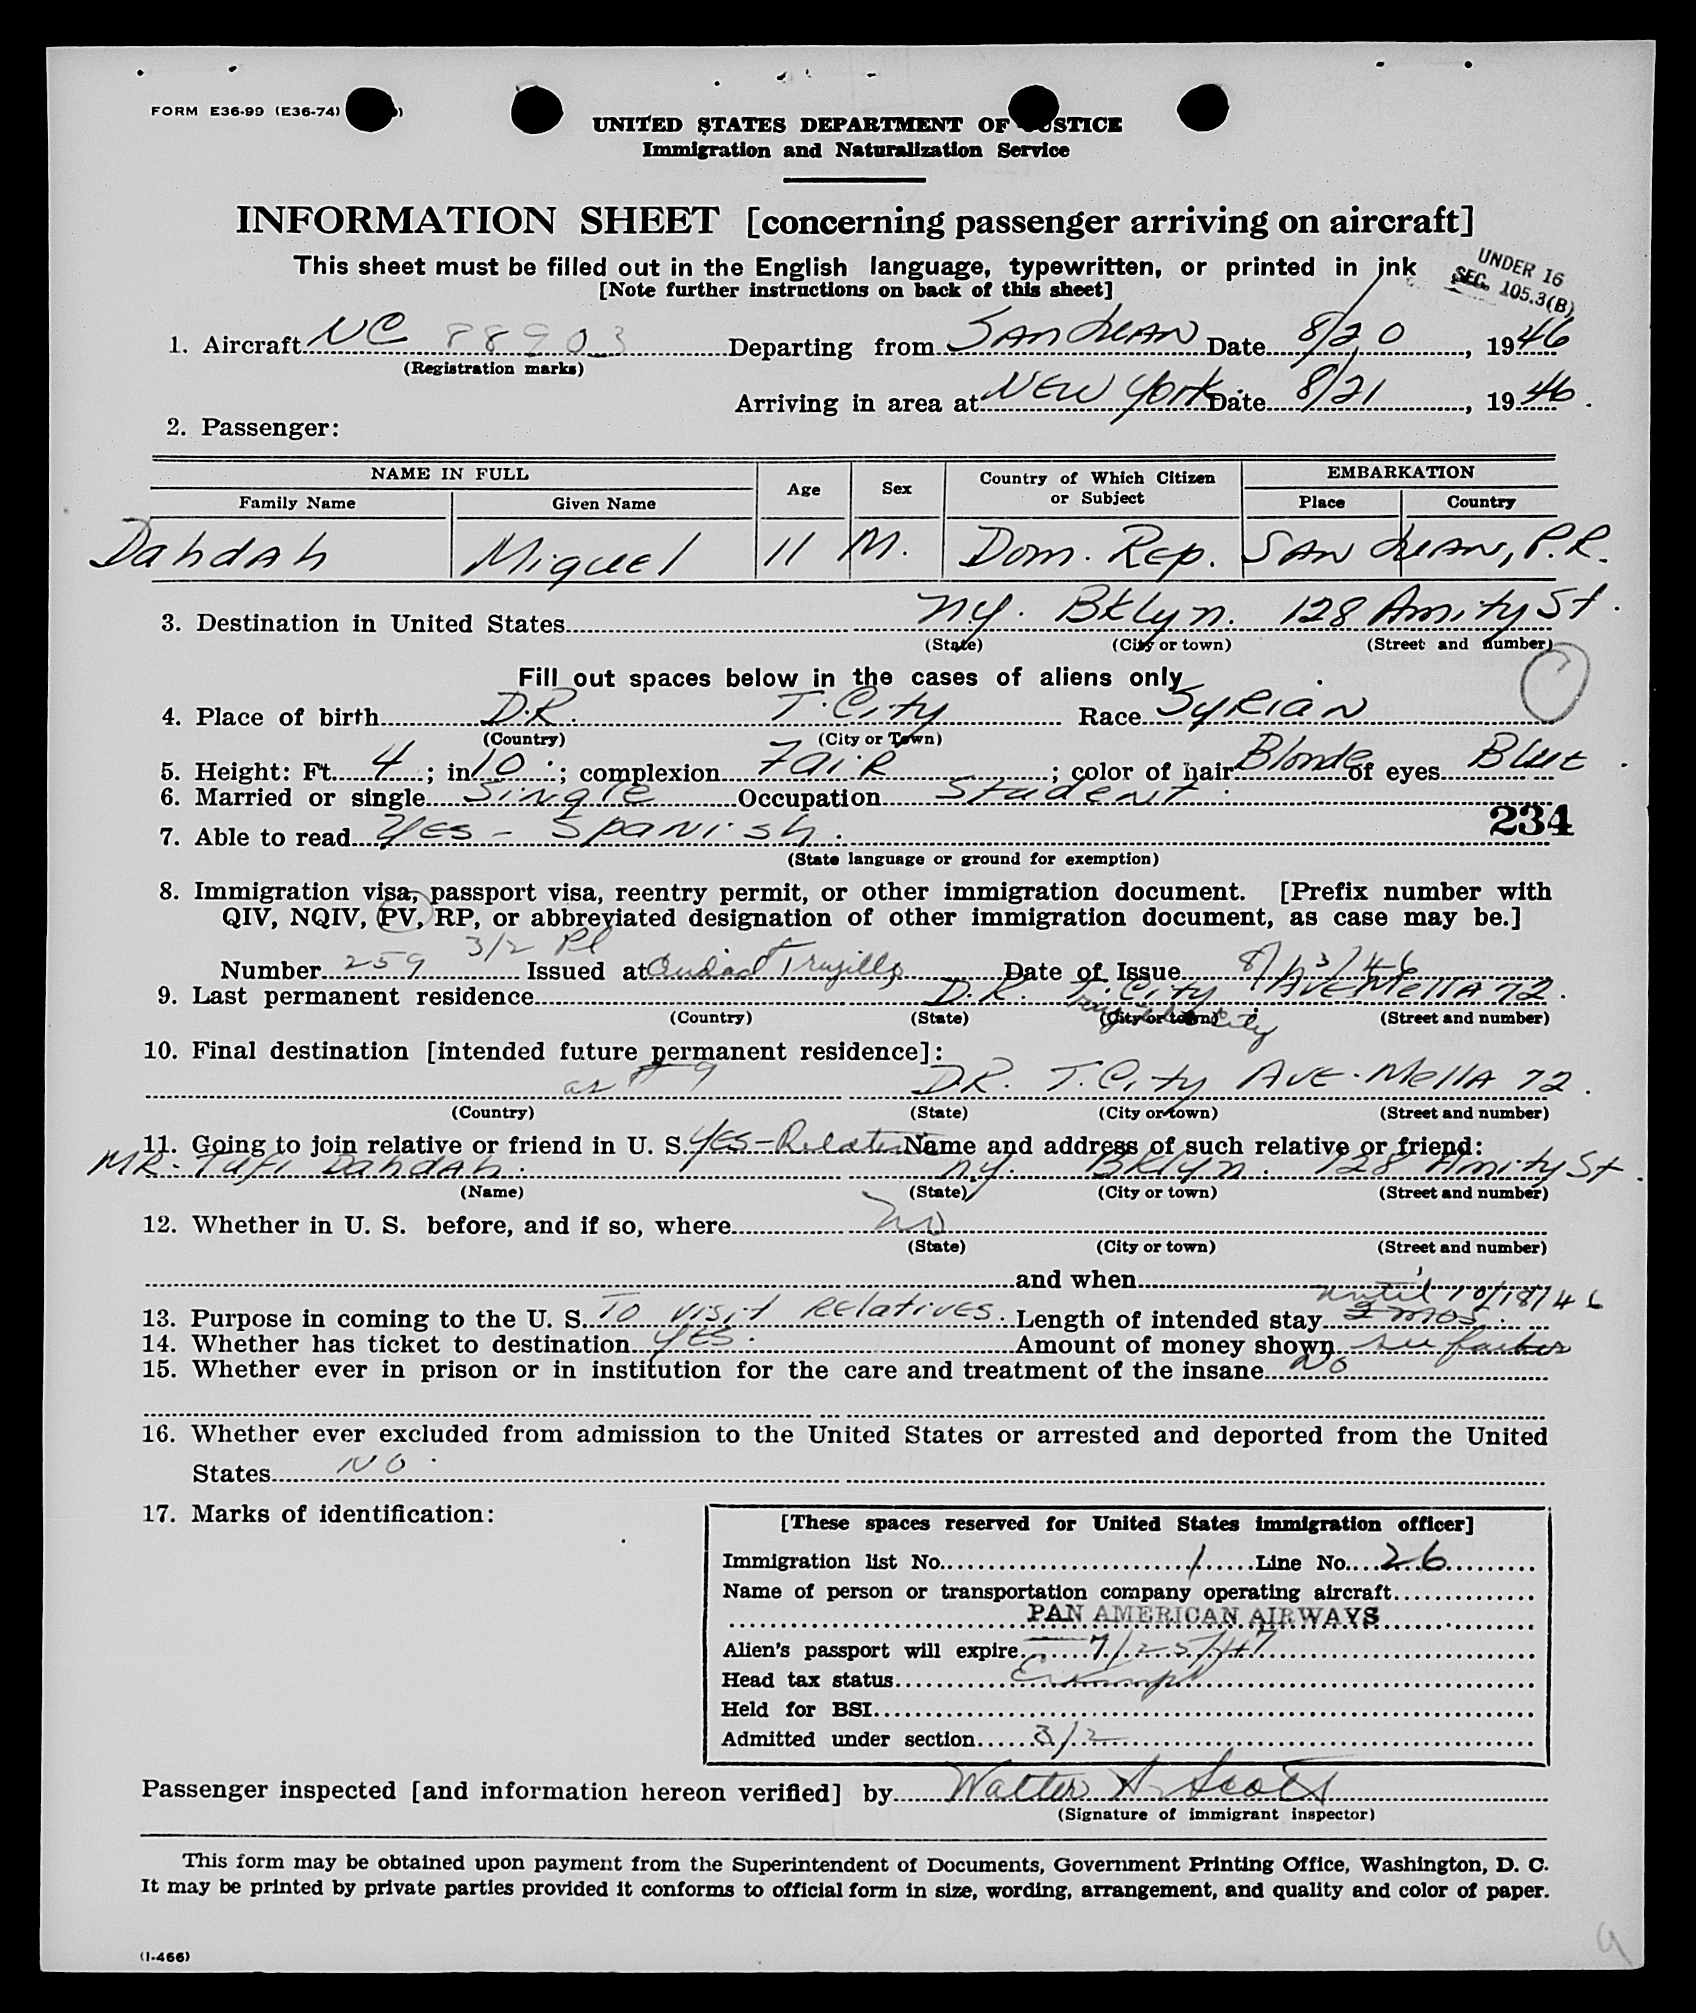 FORM E36-99 (E36-74)
UNITED STATES DEPARTMENT OF JUSTICE
Immigration and Naturalization Service
INFORMATION SHEET [concerning passenger arriving on aircraft]
This sheet must be filled out in the English language, typewritten, or printed in ink
[Note further instructions on back of this sheet]
UNDER 16
SEC. 105.3(B)
1. Aircraft NC 88903 Departing from SAN JUAN Date 8/20, 1946
(Registration marks)
Arriving in area at NEW York Date 8/21, 1946.
2. Passenger:
NAME IN FULL Age Sex Country of Which Citizen or Subject EMBARKATION
Family Name Given Name Place Country
Dahdah Miguel 11 M. Dom. Rep. SAN JUAN, P.R.
3. Destination in United States NY. Bklyn. 128 Amity St.
(State) (City or town) (Street and number)
Fill out spaces below in the cases of aliens only
4. Place of birth D.R. T. City Race Syrian
(Country) (City or Town)
5. Height: Ft. 4; in. 10; complexion Fair; color of hair Blonde of eyes Blue.
6. Married or single Single Occupation Student.
234
7. Able to read Yes - Spanish.
(State language or ground for exemption)
8. Immigration visa, passport visa, reentry permit, or other immigration document. [Prefix number with
QIV, NQIV, PV, RP, or abbreviated designation of other immigration document, as case may be.]
3/2 Pl
Number 259 Issued at Ciudad Trujillo Date of Issue 8/13/46
9. Last permanent residence D.R. T. City Ave Mella 72.
(Country) (State) (City or town) (Street and number)
10. Final destination [intended future permanent residece]:
as # 9 D.R. T. City Ave. Mella 72.
(Country) (State) (City or town) (Street and number)
11. Going to join relative or friend in U. S. Yes - Relative Name and address of such relative or friend:
MR. Tufi Dahdah. NY. Bklyn. 128 Amity St.
(Name) (State) (City or town) (Street and number)
12. Whether in U. S. before, and if so, where No
(State) (City or town) (Street and number)
and when
until 10/18/46
13. Purpose in coming to the U. S. To visit relatives. Length of intended stay 2 mos.
14. Whether has ticket to destination Yes. Amount of money shown see father
15. Whether ever in prison or in institution for the care and treatment of the insane No
16. Whether ever excluded from admission to the United States or arrested and deported from the United
States NO.
17. Marks of identification:
[These spaces reserved for United States immigration officer]
Immigration list No. 1 Line No. 26
Name of person or transportation company operating aircraft
PAN AMERICAN AIRWAYS
Alien's passport will expire 7/25/47
Head tax status Exempt
Held for BSI
Admitted under section 3/2
Passenger inspected [and information hereon verified] by Walter A. Scott
(Signature of immigrant inspector)
This form may be obtained upon payment from the Superintendent of Documents, Government Printing Office, Washington, D. C.
It may be printed by private parties provided it conforms to official form in size, wording, arrangement, and quality and color of paper.
(I-466)